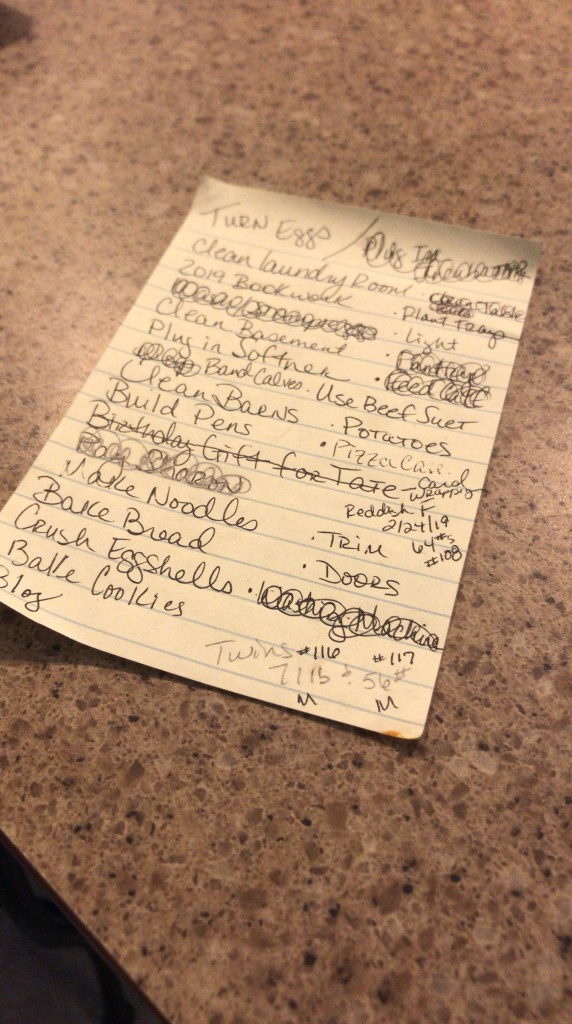 TURN Eggs /
Clean laundry Room
2019 Bookwork
• Plant Trays
• Light
Clean Basement
Plug in Softner
Band Calves • Use Beef Suet
Clean Barns • Potatoes
Build Pens • Pizza
Birthday Gift for Tate - Card
wrapping
Reddish F
2/24/19
64#s
#108
Make Noodles
Bake Bread • TRIM
• Doors
Crush Eggshells • Washing Machine
Bake Cookies
Blog
Twins #116 #117
71 lbs 56#
M M